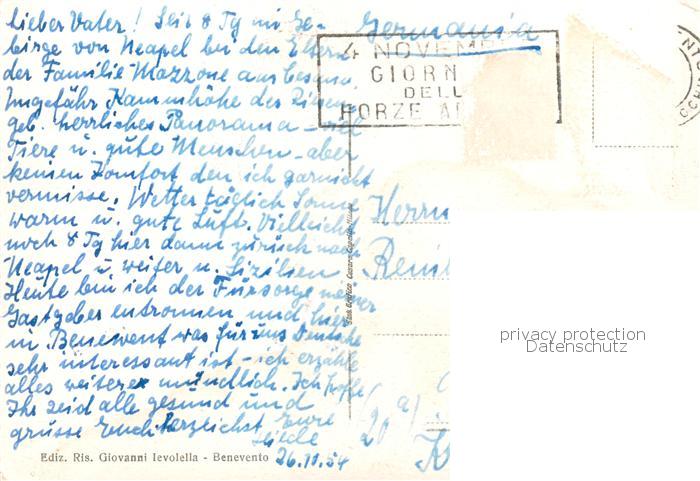 lieber Vater! Seit 8 Tg im Ge-
birge von Neapel bei den Eltern
der Familie Mazzone aus
Ungefähr Kammhöhe des Riesen
geb. herrliches Panorama – viel
Tiere u. gute Menschen – aber
keinen Komfort den ich garnicht
vermisse. Wetter täglich Sonne
warm u. gute Luft. Vielleicht
noch 8 Tg hier dann zurück nach
Neapel u. weiter n. Sizilien
Heute bin ich der Fürsorge meiner
Gastgeber entronnen und hier
in Benevent was für uns Deutsche
sehr interessant ist – ich erzähle
alles weitere mündlich. Ich hoffe
Ihr seid alle gesund und
grüsse Euch herzlichst Eure
26.11.54
Ediz. Ris. Giovanni Ievolella - Benevento
Germania
4 NOVEM
GIORN
DELL
FORZE A
Herrn
20 a)
privacy protection
Datenschutz